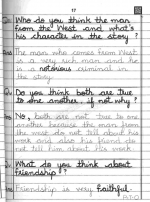 17
Do Who do you think the man
from the West and what's
his character in the story ?
Ans The man who comes from West
is a very rich man and he
is a notorious criminal in
the story.
Q. Do you think both are true
to one another. if not why ?
Ans No, both are not true to one
another because the man from
the west do not tell about his
work and also his friend do
not tell him about his work.
Q. What do you think about
friendship ?
Ans Friendship is very faithful.